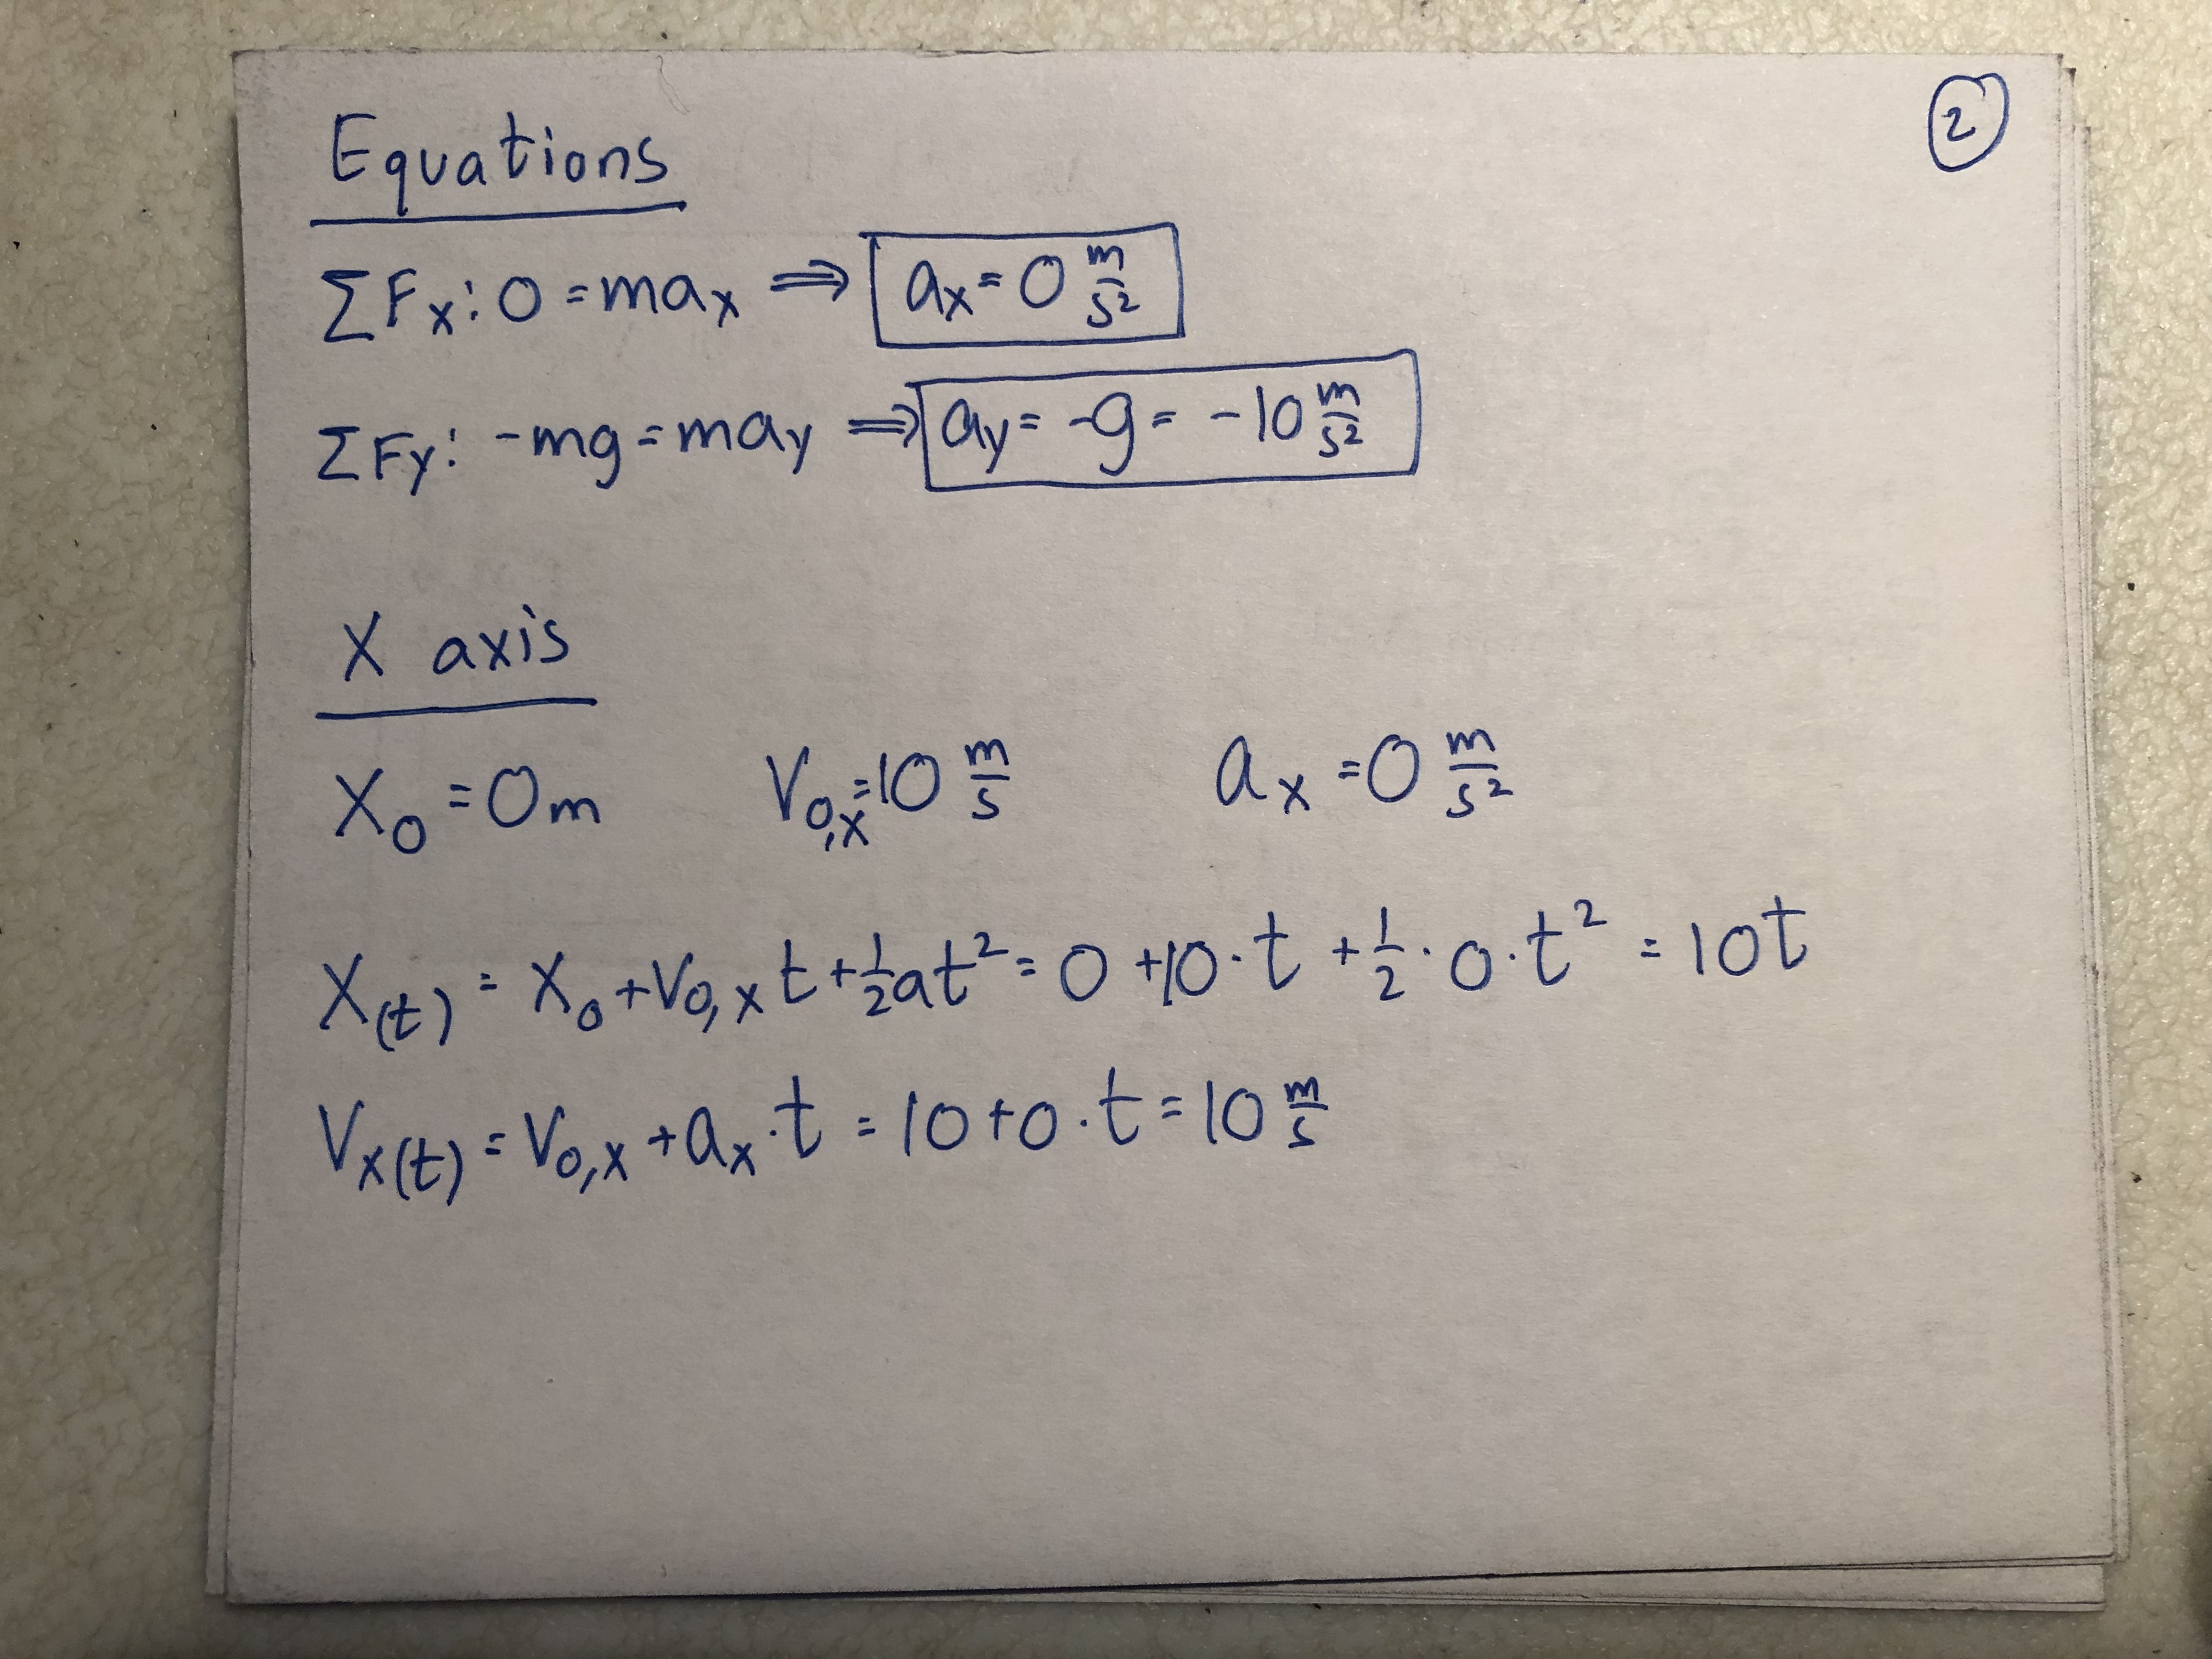 2
Equations
ΣFx: 0 = max ⟹ ax = 0 m/s²
ΣFy: -mg = may ⟹ ay = -g = -10 m/s²
X axis
X₀ = 0m V₀,x = 10 m/s ax = 0 m/s²
X(t) = X₀ + V₀,x t + ½at² = 0 + 10·t + ½·0·t² = 10t
Vx(t) = V₀,x + ax·t = 10 + 0·t = 10 m/s